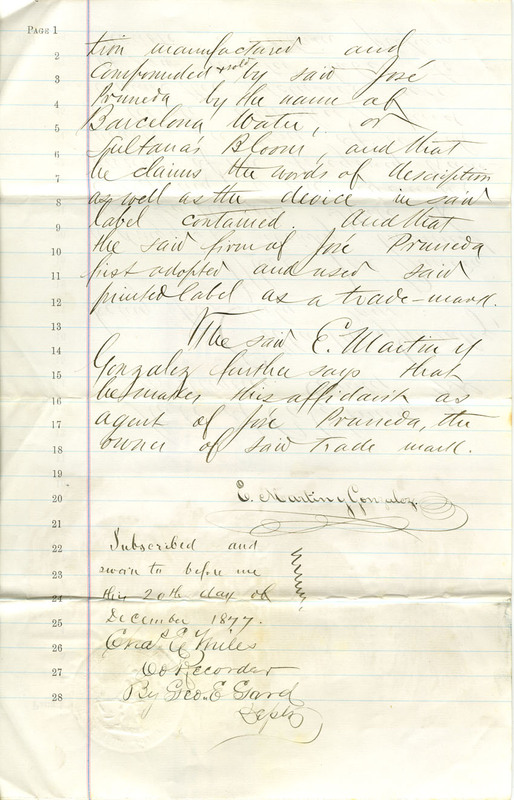 PAGE 1
tion manufactured and
2
Compounded & sold by said José
3
Pruneda by the name of
4
Barcelona Water, or
5
Sultana's Bloom, and that
6
he claims the words of description
7
as well as the device in said
8
label contained. And that
9
the said firm of José Pruneda
10
first adopted and used said
11
printed label as a trade-mark.
12
13
The said E. Martin y
14
Gonzalez further says that
15
he makes this affidavit as
16
agent of José Pruneda, the
17
owner of said trade mark.
18
19
E. Martin y Gonzalez.
20
21
Subscribed and
22
sworn to before me
23
this 20th day of
24
December 1877.
25
Chas E Miles
26
Co Recorder
27
By Geo. E Gard
28
Depty